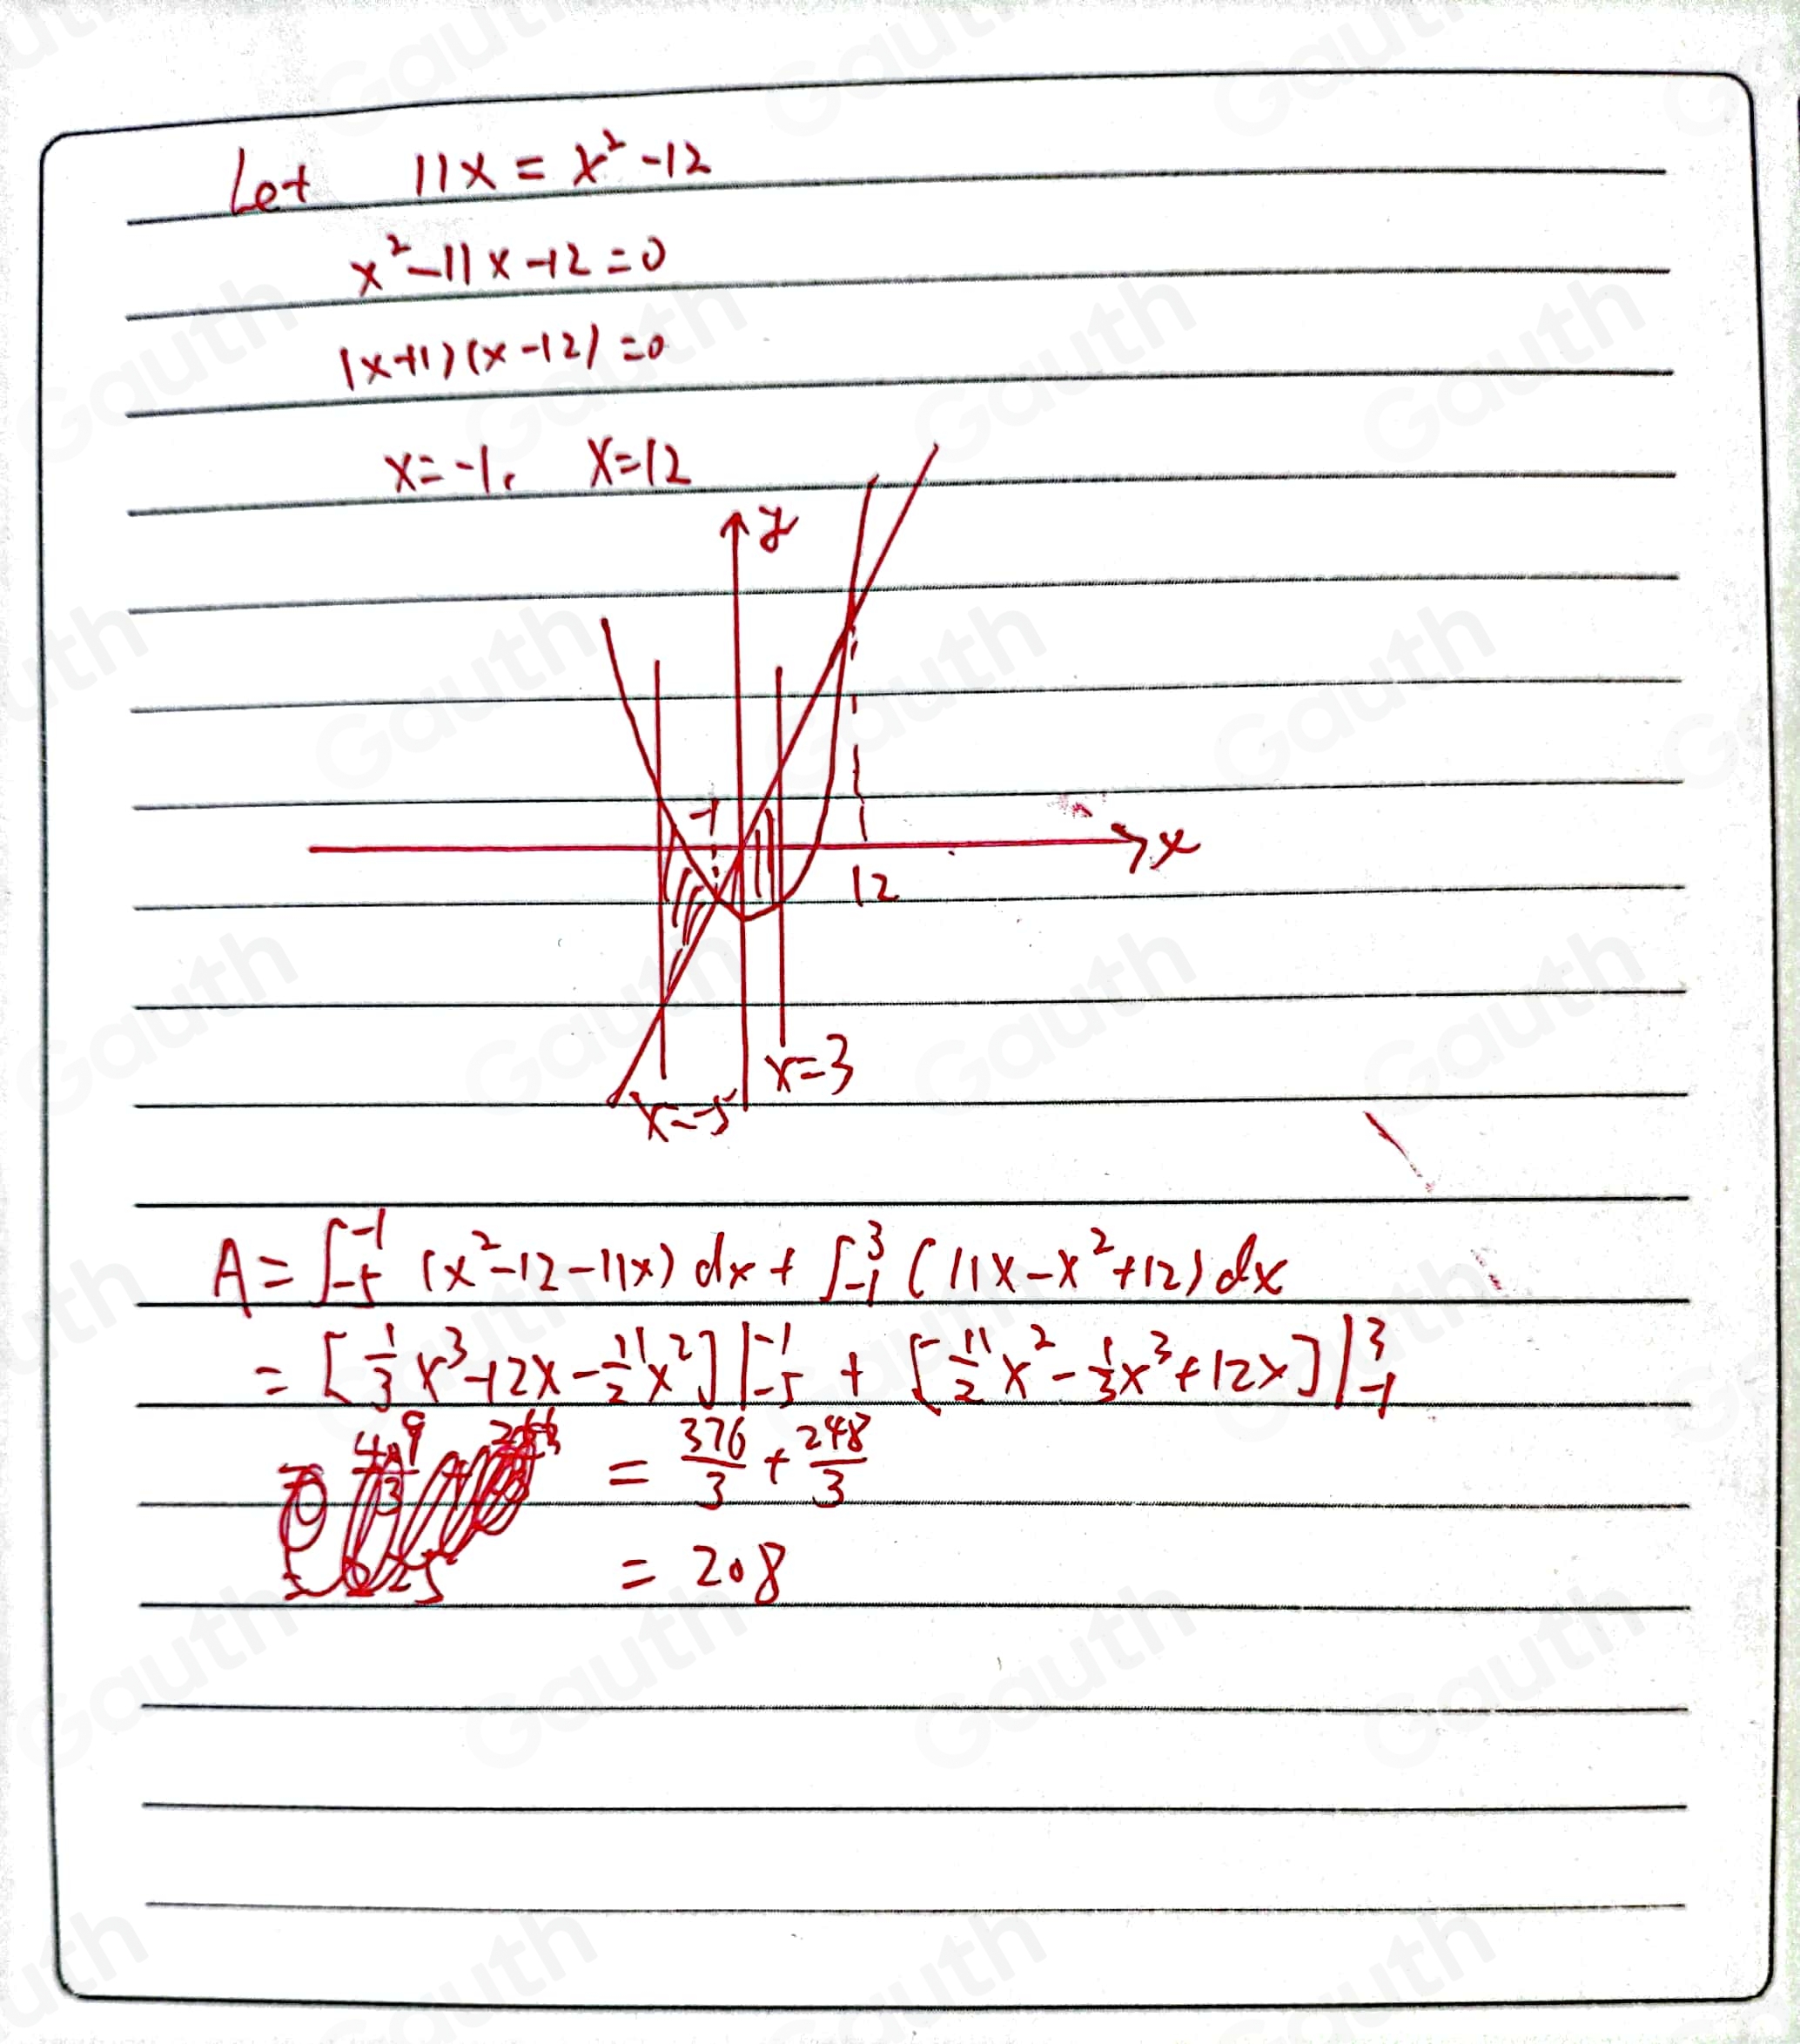 Let 11x = x² -12
x² -11x -12 = 0
(x+1)(x-12) = 0
x = -1, x = 12
y
-1
x
12
x = 3
x = -5
A = ∫₋₅⁻¹ (x² -12 -11x) dx + ∫₋₁³ (11x - x² +12) dx
= [1/3 x³ -12x - 11/2 x²] |₋₅⁻¹ + [11/2 x² - 1/3 x³ + 12x] |₋₁³
= 376/3 + 248/3
= 208